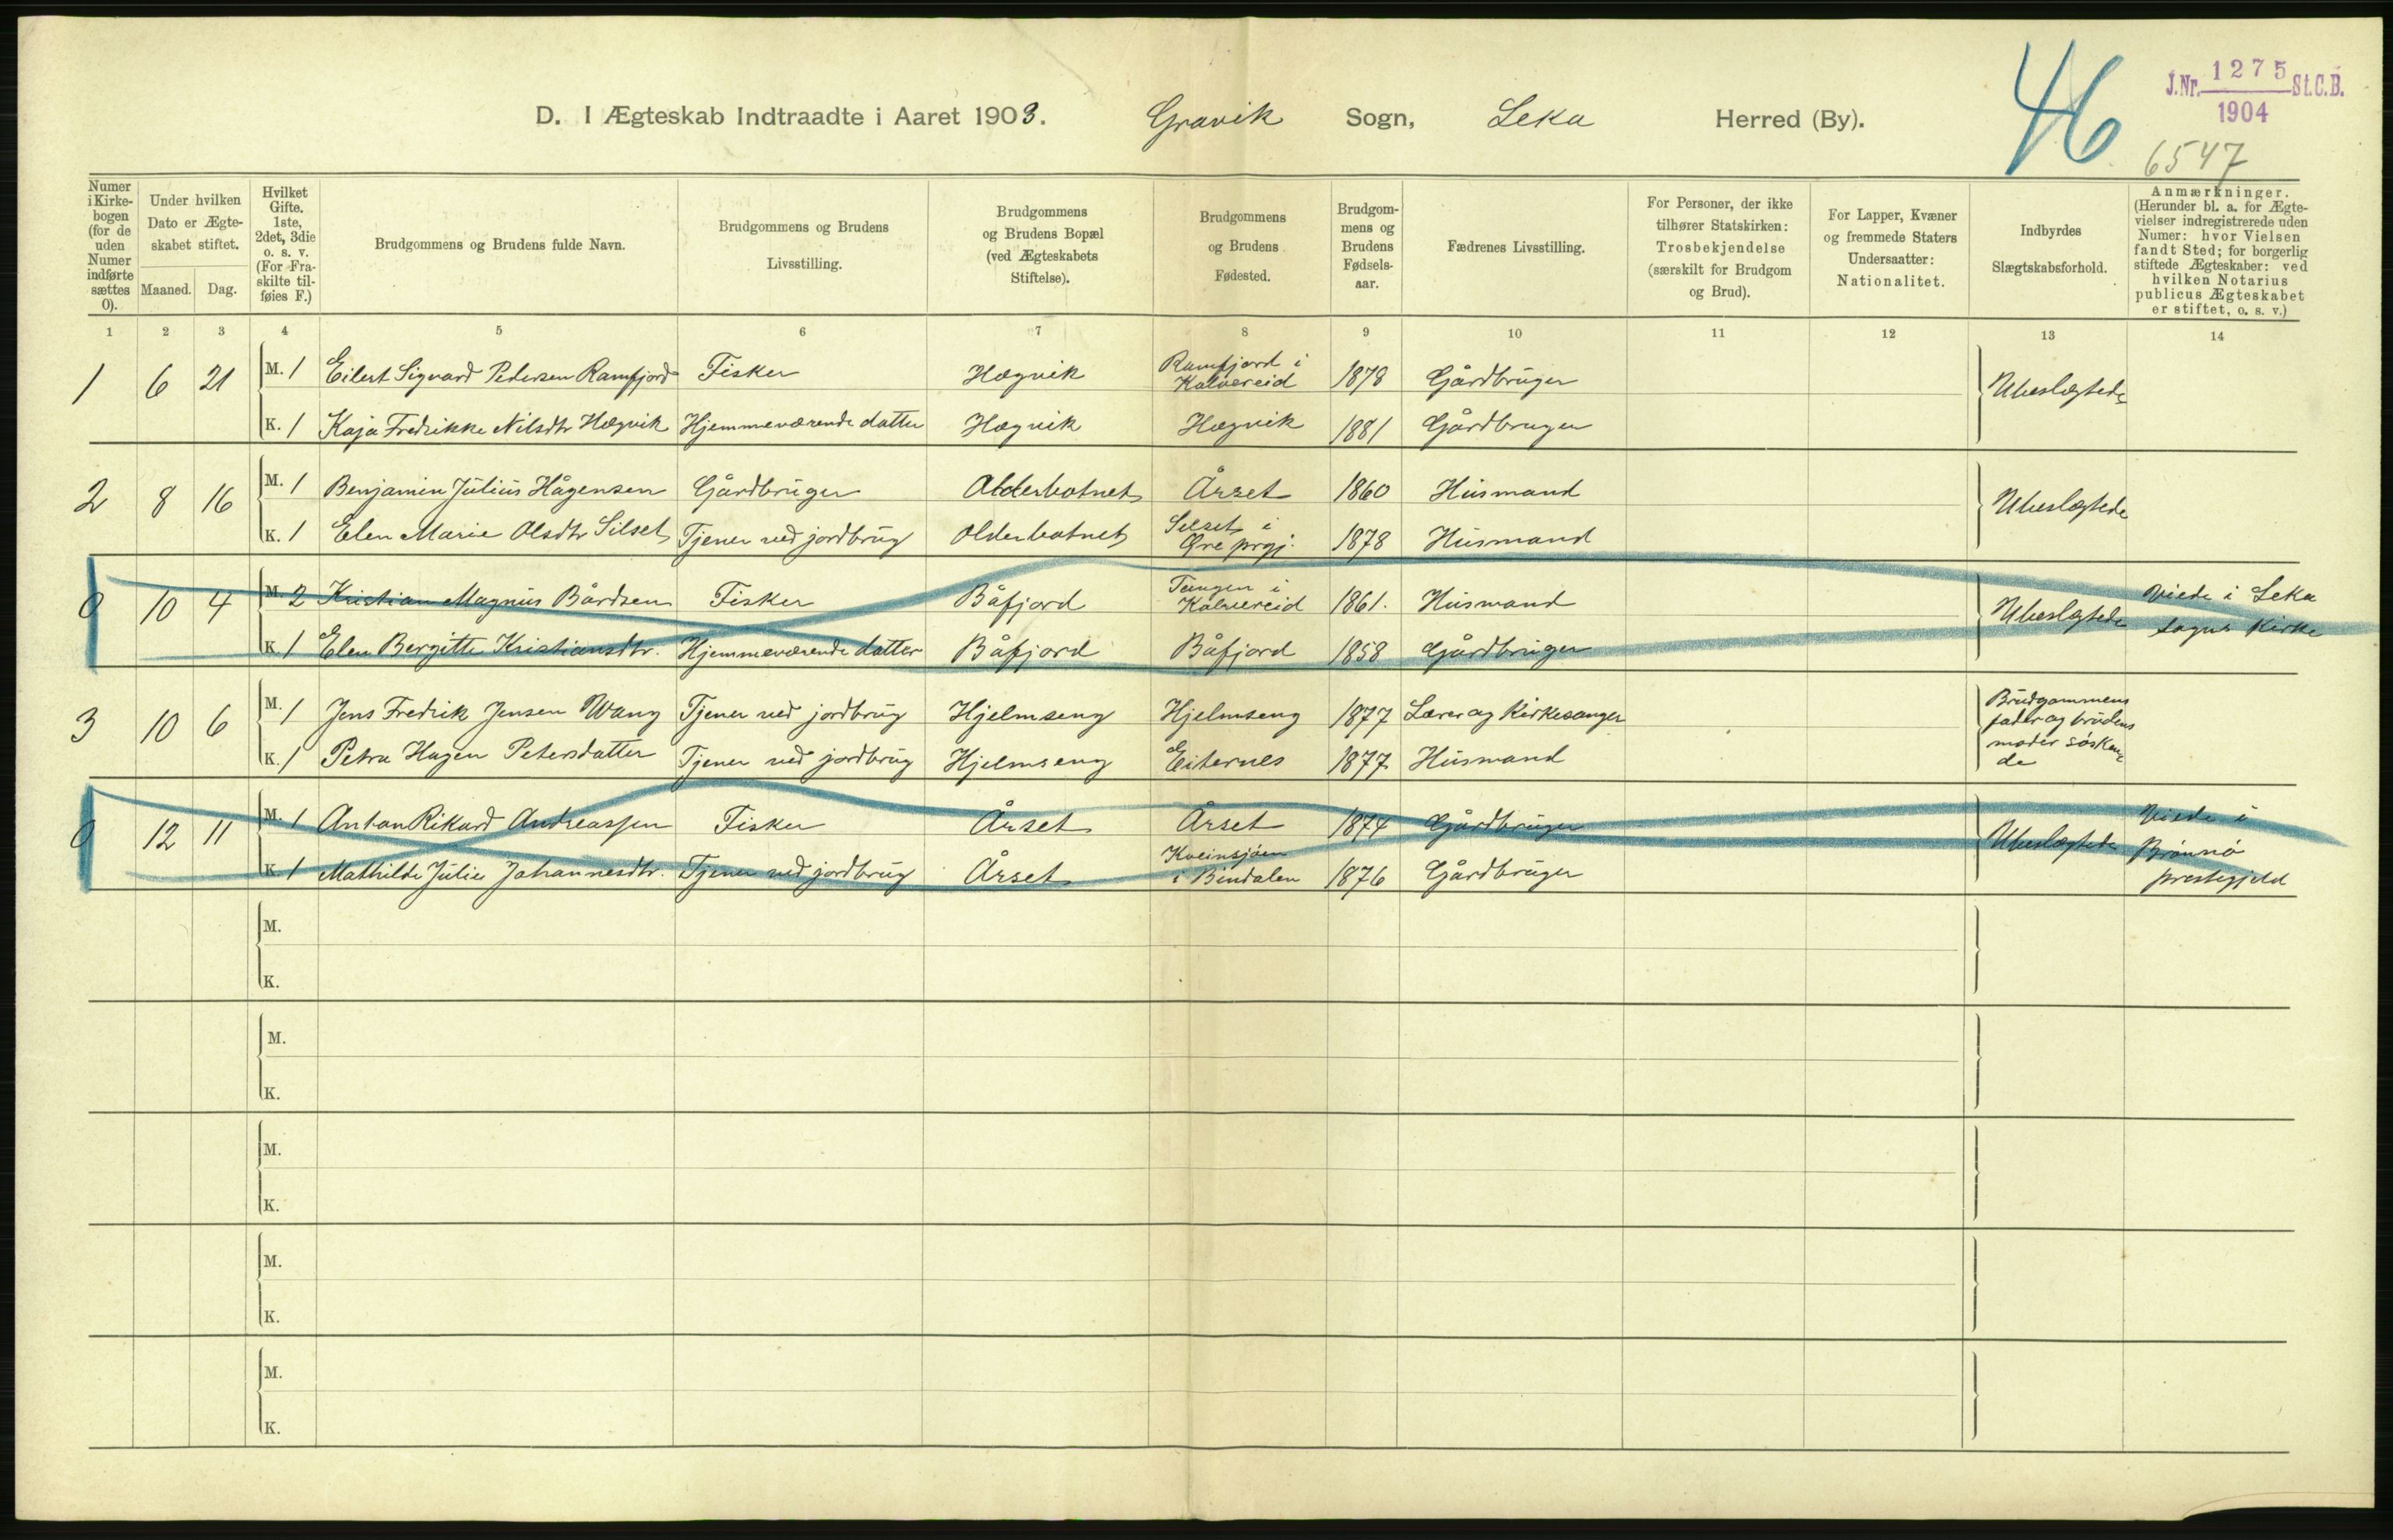 D. I Ægteskab Indtraadte i Aaret 1903. Gravik Sogn, Leka Herred (By).
46
J.Nr. 1275 St.C.B.
1904
6547
Numer i Kirkebogen (for de uden Numer indførte sættes 0).
Under hvilken Dato er Ægteskabet stiftet.
Maaned. Dag.
Hvilket Gifte. 1ste, 2det, 3die o. s. v. (For Fraskilte tilføies F.)
Brudgommens og Brudens fulde Navn.
Brudgommens og Brudens Livsstilling.
Brudgommens og Brudens Bopæl (ved Ægteskabets Stiftelse).
Brudgommens og Brudens Fødested.
Brudgommens og Brudens Fødselsaar.
Fædrenes Livsstilling.
For Personer, der ikke tilhører Statskirken: Trosbekjendelse (særskilt for Brudgom og Brud).
For Lapper, Kvæner og fremmede Staters Undersaatter: Nationalitet.
Indbyrdes Slægtskabsforhold.
Anmærkninger. (Herunder bl. a. for Ægtevielser indregistrerede uden Numer: hvor Vielsen fandt Sted; for borgerlig stiftede Ægteskaber: ved hvilken Notarius publicus Ægteskabet er stiftet, o. s. v.)
1 2 3 4 5 6 7 8 9 10 11 12 13 14
1 6 21 M. 1 Eilert Sigvard Pedersen Ramfjord Fisker Hægvik Ramfjord i Kolvereid 1878 Gårdbruger Ubeslægtede
K. 1 Kaja Fredrikke Nilsdtr Hægvik Hjemmeværende datter Hægvik Hægvik 1881 Gårdbruger
2 8 16 M. 1 Benjamin Julius Hågensen Gårdbruger Olderbotnet Årset 1860 Husmand Ubeslægtede
K. 1 Elen Marie Olsdtr Silset Tjener ved jordbrug Olderbotnet Silset i Øre prgj. 1878 Husmand
0 10 4 M. 2 Kristian Magnus Bårdsen Fisker Båfjord Tungen i Kolvereid 1861. Husmand Ubeslægtede Viede i Leka sogns Kirke
K. 1 Elen Bergitte Kristiansdtr. Hjemmeværende datter Båfjord Båfjord 1858 Gårdbruger
3 10 6 M. 1 Jens Fredrik Jensen Wang Tjener ved jordbrug Hjelmseng Hjelmseng 1877 Lærer og Kirkesanger Brudgommens fader og brudens moder søskende
K. 1 Petra Hagen Petersdatter Tjener ved jordbrug Hjelmseng Eiternes 1877 Husmand
0 12 11 M. 1 Anton Rikard Andreassen Fisker Årset Årset 1874 Gårdbruger Ubeslægtede Viede i Brønnø prestegjeld
K. 1 Mathilde Julie Johannesdtr. Tjener ved jordbrug Årset Kveinsjøen i Bindalen 1876 Gårdbruger
M.
K.
M.
K.
M.
K.
M.
K.
M.
K.